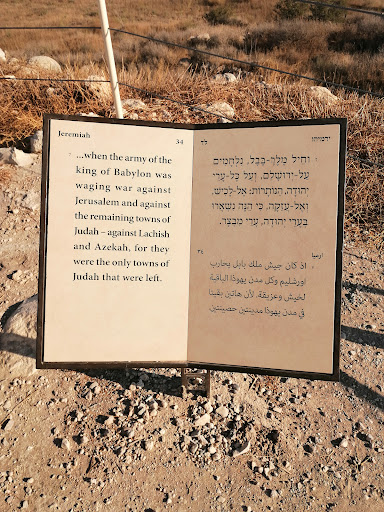 Jeremiah 34
...when the army of the
king of Babylon was
waging war against
Jerusalem and against
the remaining towns of
Judah – against Lachish
and Azekah, for they
were the only towns of
Judah that were left.
ירמיהו לד
וְחֵיל מֶלֶךְ-בָּבֶל, נִלְחָמִים
עַל-יְרוּשָׁלִַם, וְעַל כָּל-עָרֵי
יְהוּדָה, הַנּוֹתָרוֹת: אֶל-לָכִישׁ,
וְאֶל-עֲזֵקָה, כִּי הֵנָּה נִשְׁאֲרוּ
בְּעָרֵי יְהוּדָה, עָרֵי מִבְצָר.
ارميا ٣٤
اذ كان جيش ملك بابل يحارب
اورشليم وكل مدن يهوذا الباقية
لخيش وعزيقة. لأن هاتين بقيتا
في مدن يهوذا مدينتين حصينتين